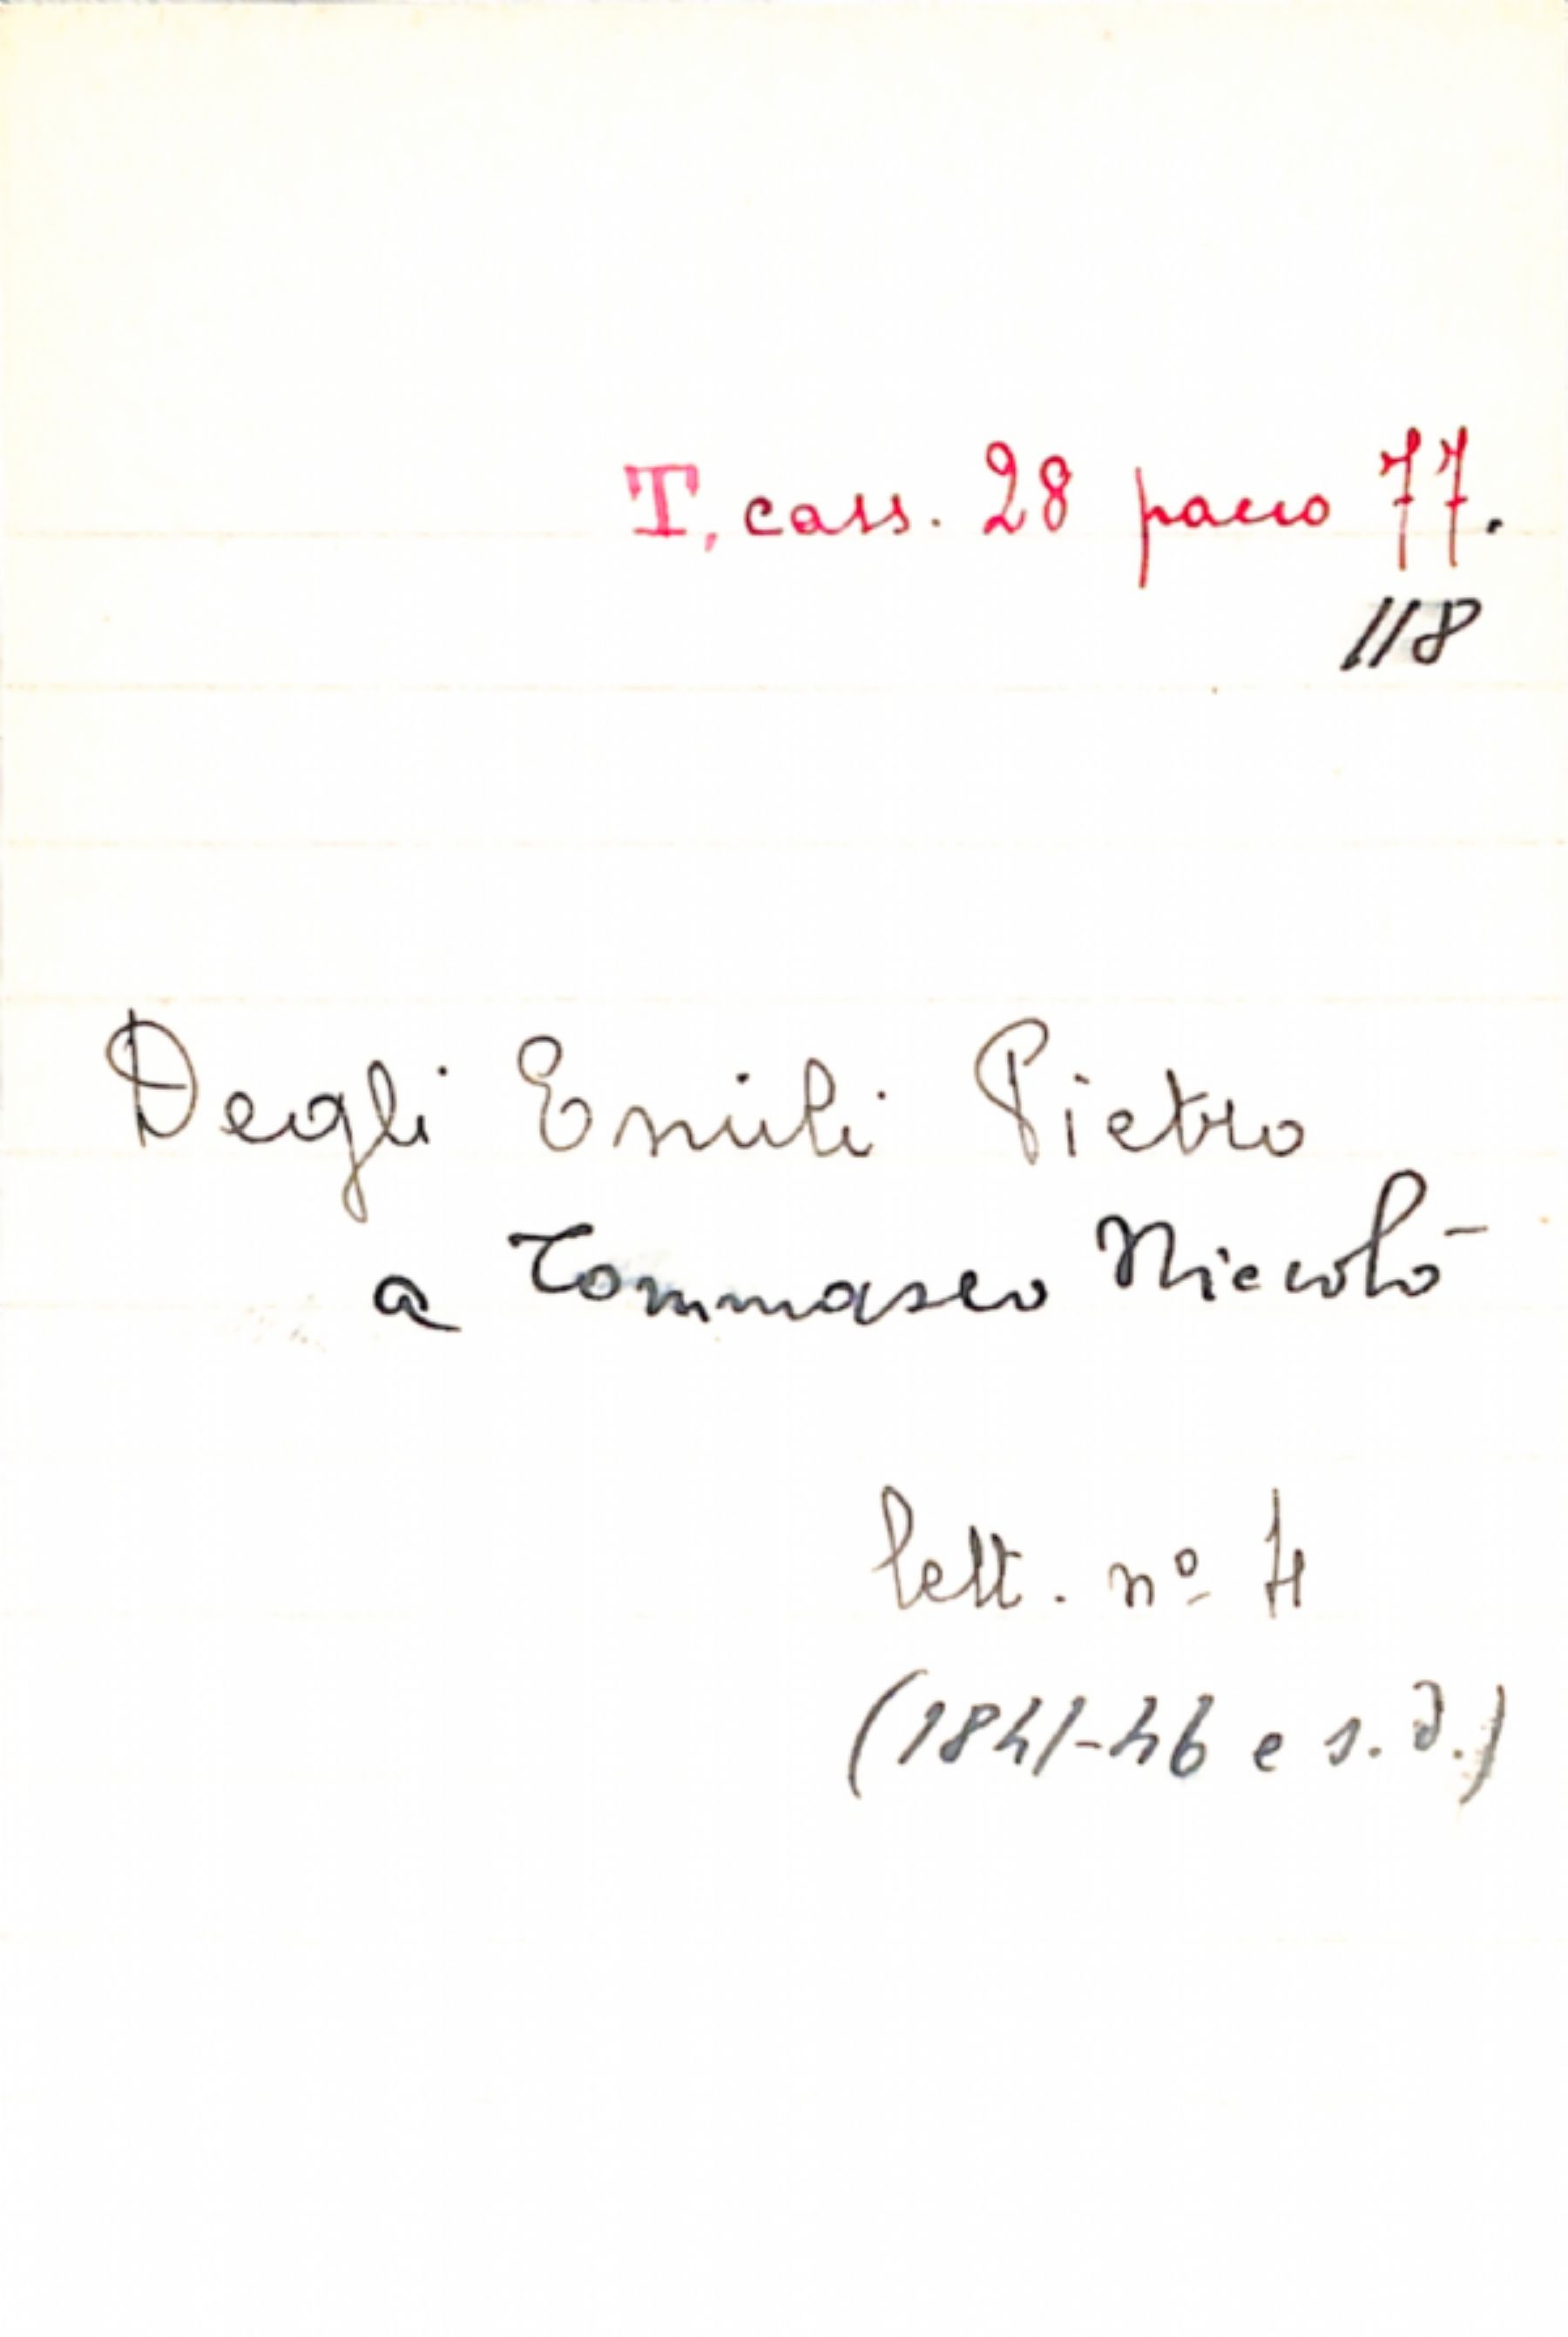 T, cass. 28 pacco 77.
118
Degli Emili Pietro
a Tommaseo Niccolò
lett. nº 4
(1841-46 e s. d.)